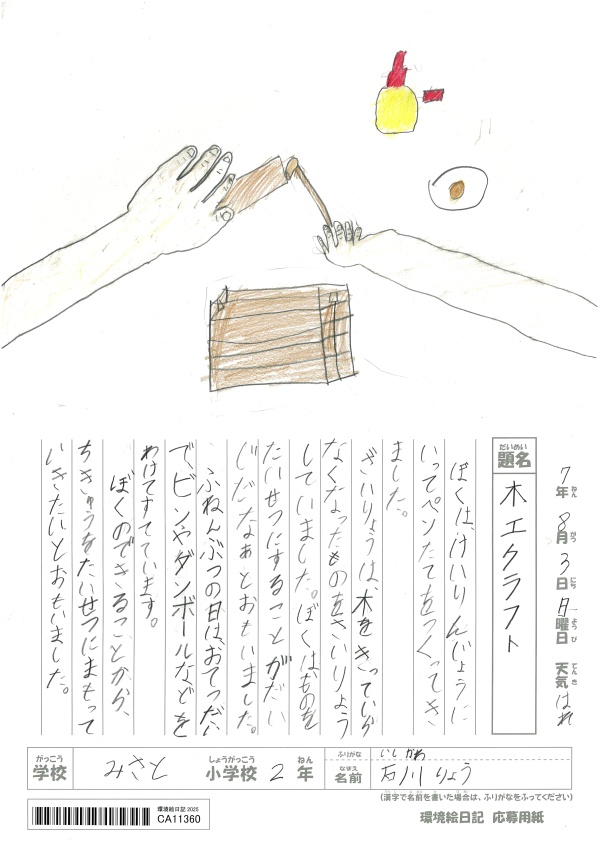 7年 8月 3日 月曜日 天気 はれ
ねん がつ にち ようび てんき
だいめい
題名 木工クラフト
ぼくは、けいりんじょうに
いってペンたてをつくってき
ました。
ざいりょうは、木をきっていら
なくなったものをざいりょう
していました。ぼくはものを
たいせつにすることがだい
じだなぁとおもいました。
ふねんぶつの日は、おてつだい
で、ビンやダンボールなどを
わけてすてています。
ぼくのできることから、
ちきゅうをたいせつにまもって
いきたいとおもいました。
がっこう しょうがっこう ねん ふりがな いしかわ
学校 みさと 小学校 2年 名前 石川りょう
なまえ
(漢字で名前を書いた場合は、ふりがなをふってください)
環境絵日記 2025
CA11360
環境絵日記 応募用紙